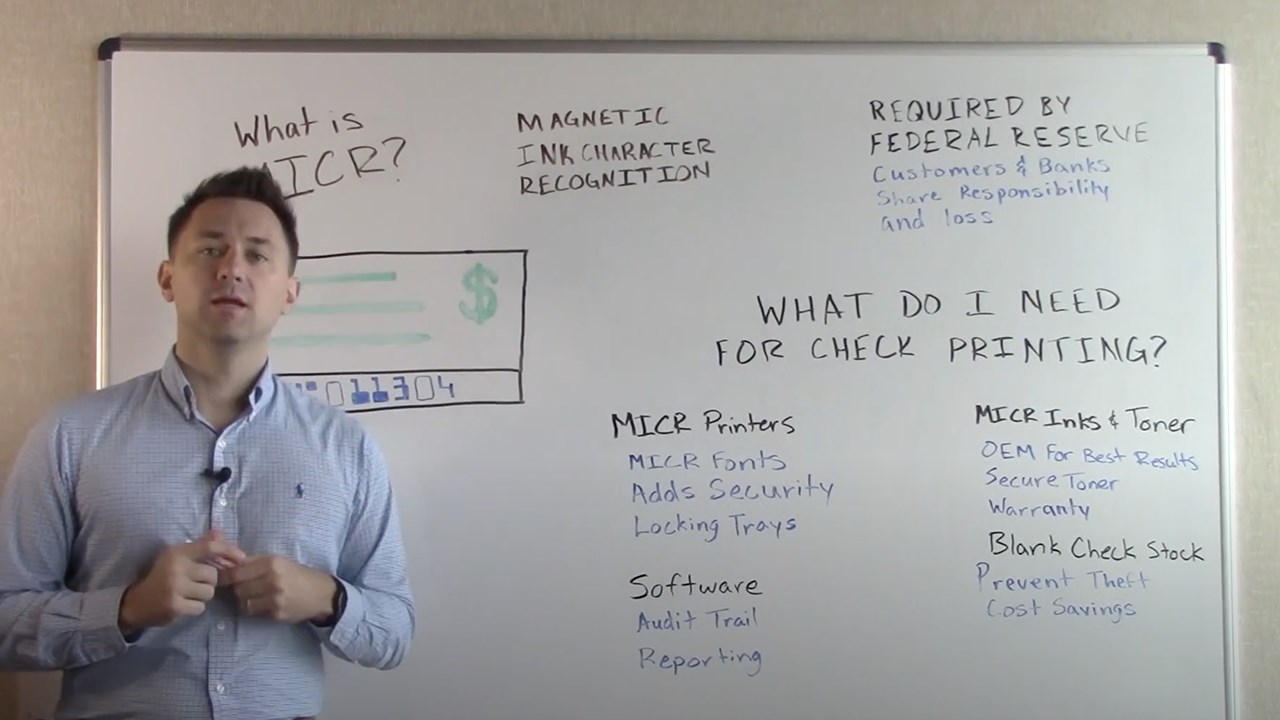 What is
MICR?
MAGNETIC
INK CHARACTER
RECOGNITION
REQUIRED BY
FEDERAL RESERVE
Customers & Banks
Share Responsibility
and loss
$
011304
WHAT DO I NEED
FOR CHECK PRINTING?
MICR Printers
MICR Fonts
Adds Security
Locking Trays
Software
Audit Trail
Reporting
MICR Inks & Toner
OEM For Best Results
Secure Toner
Warranty
Blank Check Stock
Prevent Theft
Cost Savings